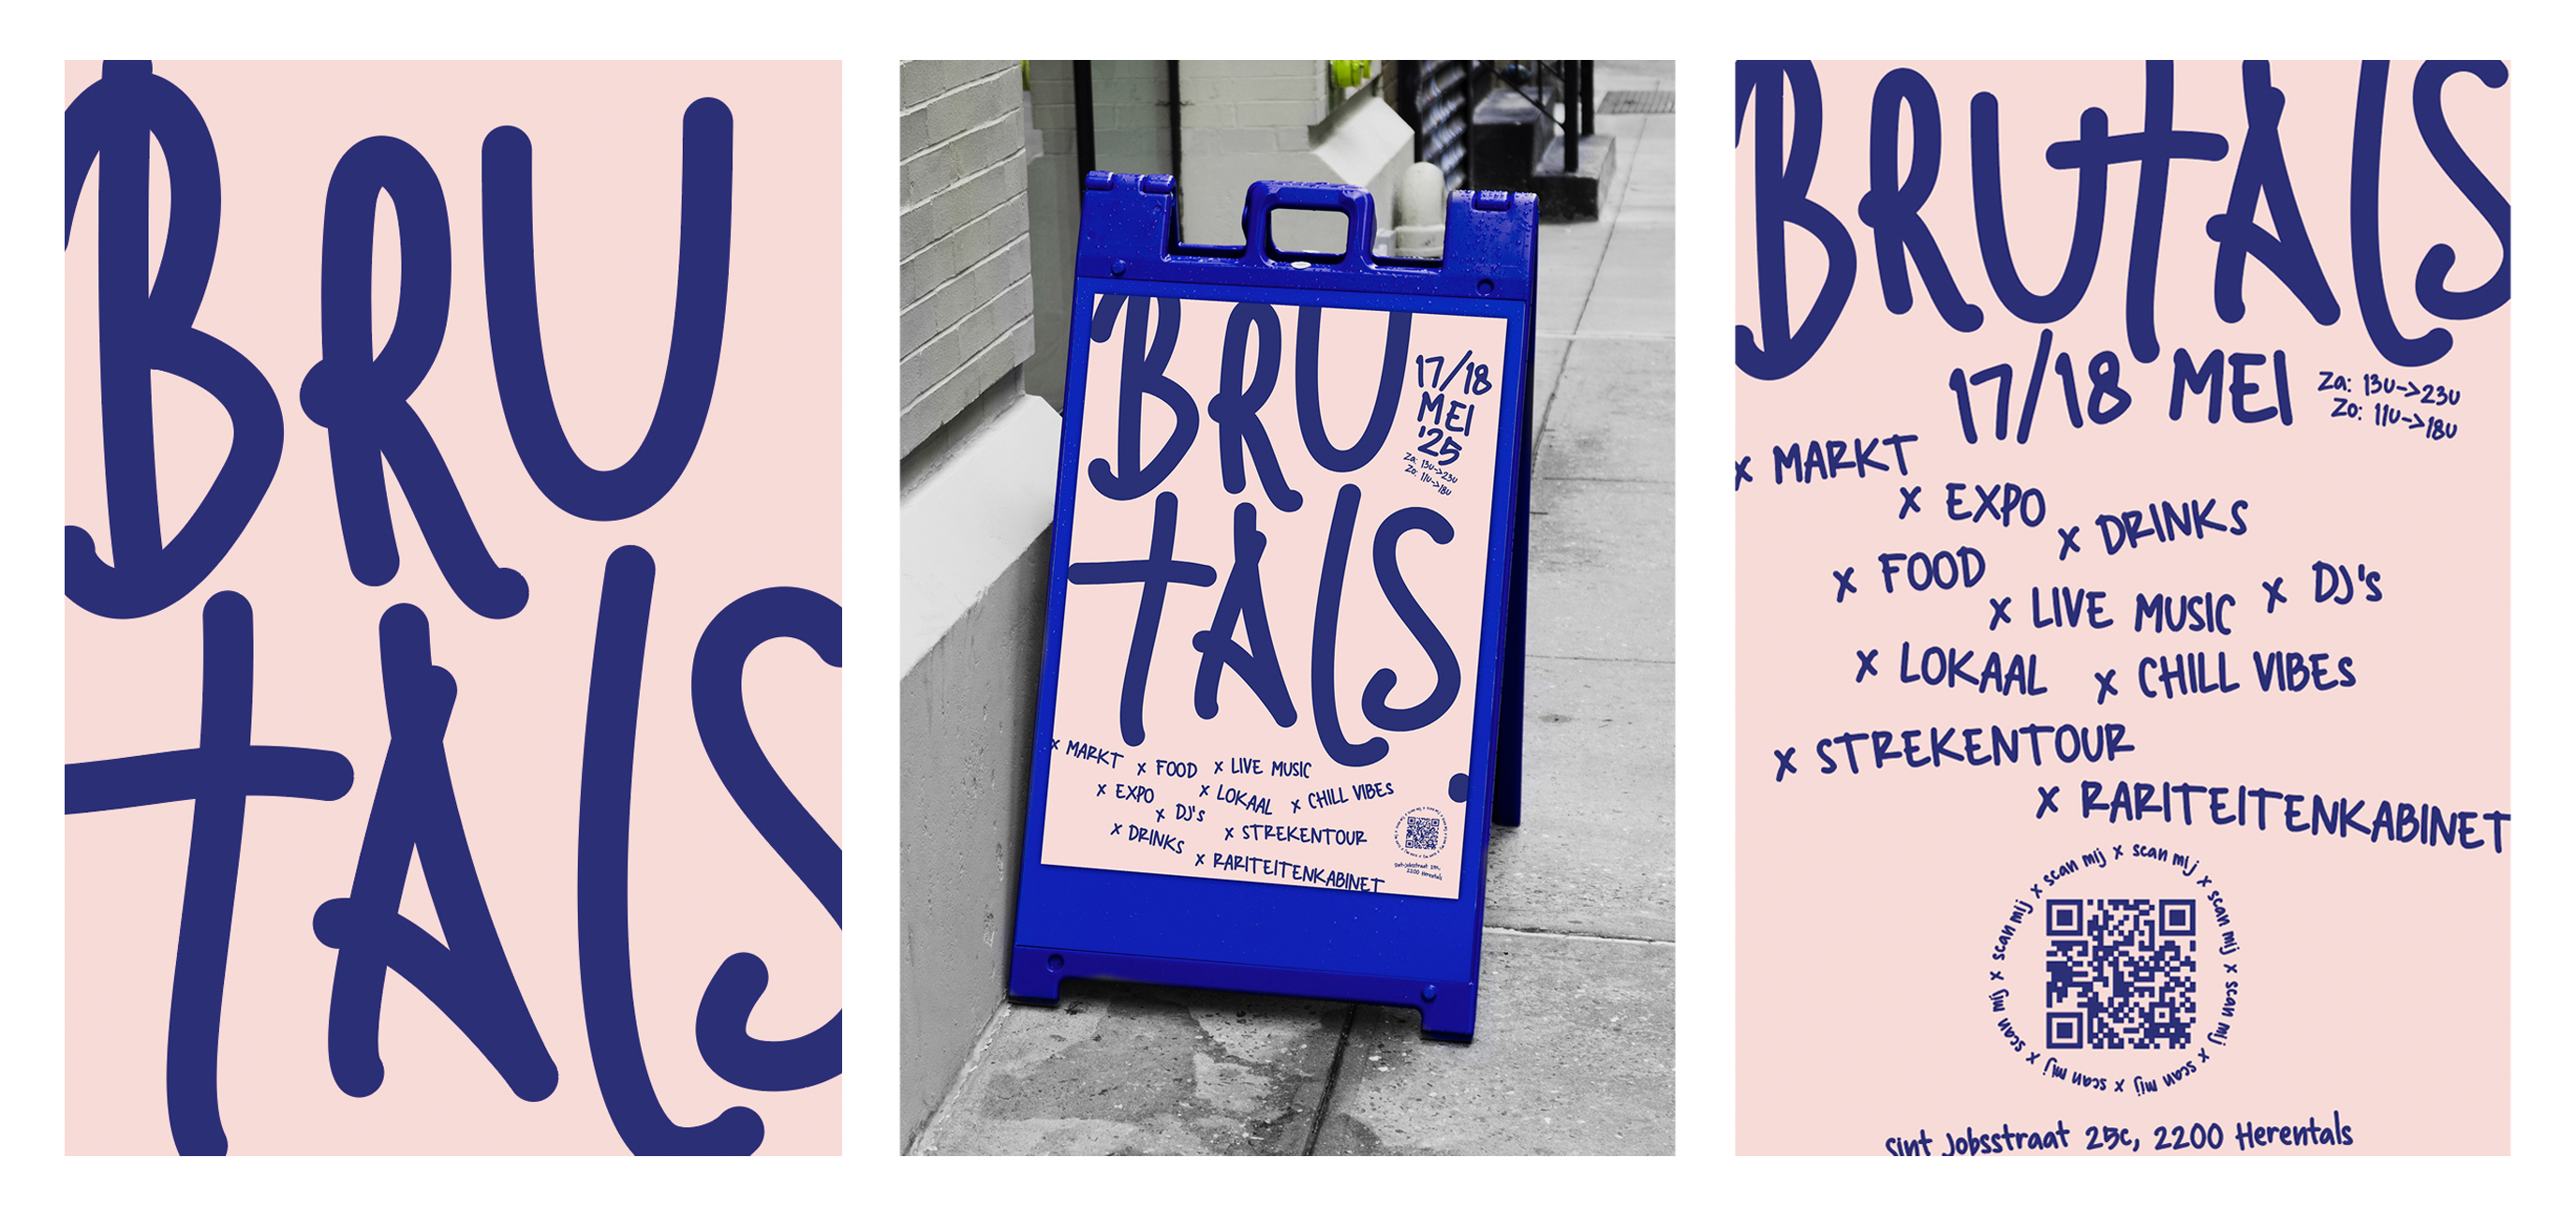 BRU
tAlS
BRU
tAlS
17/18
MEI
'25
Za: 13u->23u
Zo: 11u->18u
x MARKT x FOOD x LIVE MUSIC
x EXPO x LOKAAL x CHILL VIBES
x DJ's
x DRINKS x STREKENTOUR
x RARITEITENKABINET
Sint-Jobsstraat 25c,
2200 Herentals
BRUtAlS
17/18 MEI
Za: 13u->23u
Zo: 11u->18u
x MARKT
x EXPO
x DRINKS
x FOOD
x LIVE MUSIC
x DJ's
x LOKAAL
x CHILL VIBES
x STREKENTOUR
x RARITEITENKABINET
x scan mij x scan mij x scan mij x scan mij x scan mij x scan mij x scan mij x scan mij
Sint Jobsstraat 25c, 2200 Herentals